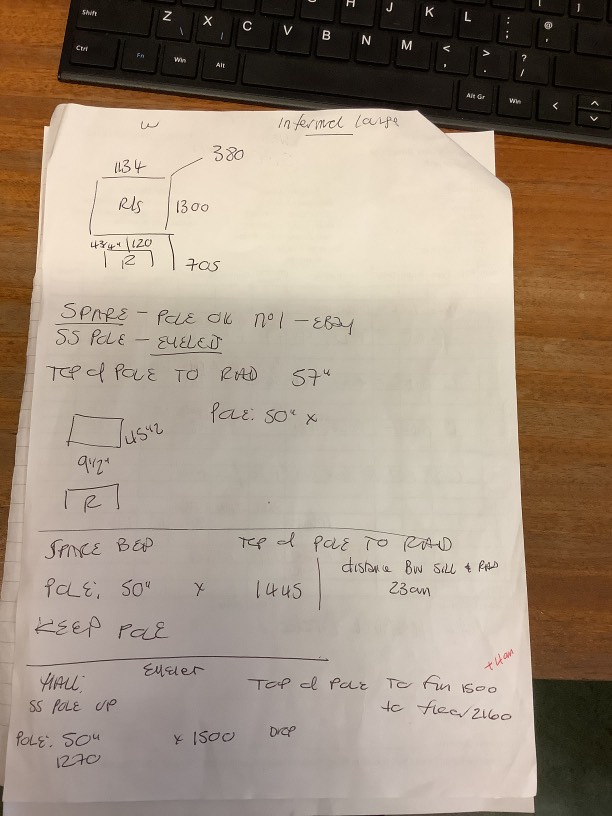 Shift Z X C V B N M H J K L : ; @ ' < , > . ? /
Ctrl Fn Win Alt Alt Gr Win
W Internal large
1134 380
R/S 1300
4 3/4" 120
R 705
SPARE - POLE OK No 1 - EBAY
SS POLE - EYELET
TOP of POLE TO RAD 57"
POLE: 50" x
9 1/2"
R
SPARE BED TOP of POLE TO RAD
POLE: 50" x 1445 distance BW SILL & RAD
23cm
KEEP POLE
HALL: EYELET TOP of POLE TO Fin 1500 +4cm
SS POLE UP to floor 2160
POLE: 50" x 1500 DROP
1270